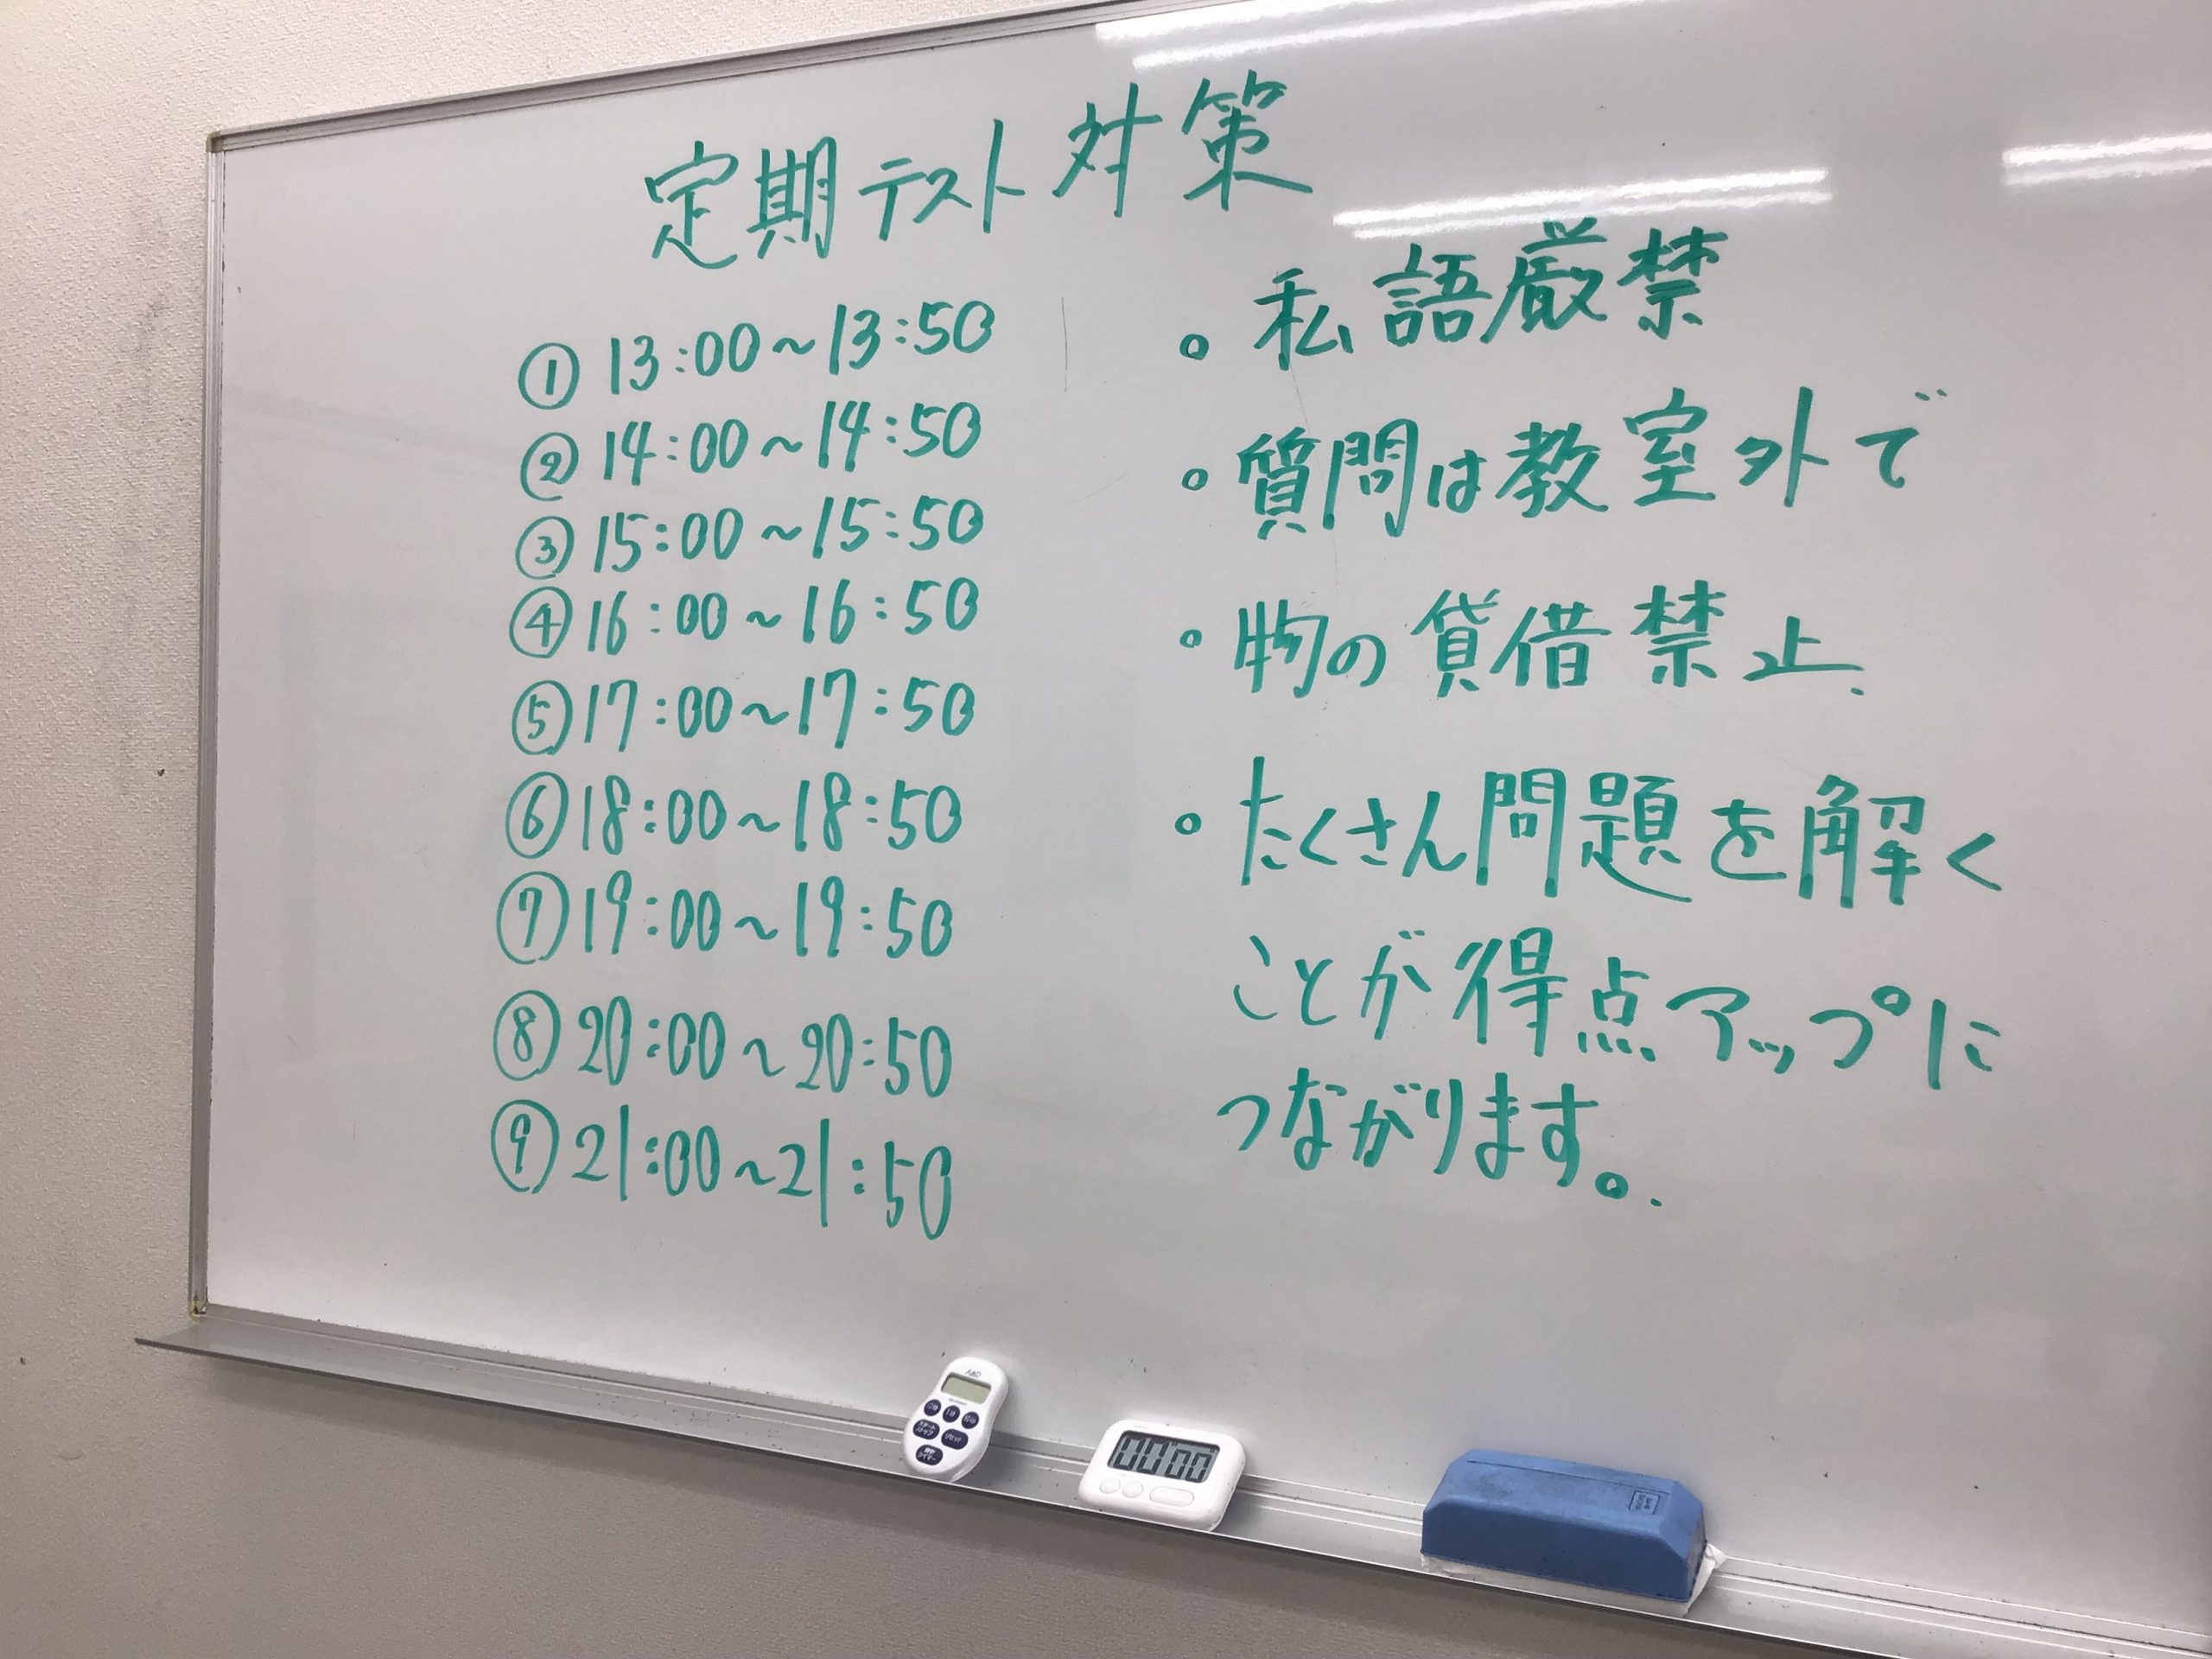 定期テスト対策
① 13:00~13:50
② 14:00~14:50
③ 15:00~15:50
④ 16:00~16:50
⑤ 17:00~17:50
⑥ 18:00~18:50
⑦ 19:00~19:50
⑧ 20:00~20:50
⑨ 21:00~21:50
。私語厳禁
。質問は教室外で
。物の貸借禁止
。たくさん問題を解く
ことが得点アップに
つながります。
A&D
スタート
ストップ
リセット
00:00